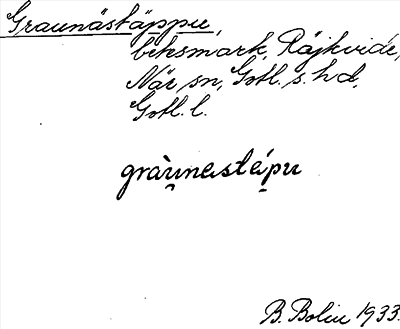 Graunästäppu,
betesmark, Räjkvide,
När sn, Gotl. s. hd,
Gotl. l.
grau̯nestępu
B. Bolin 1933.